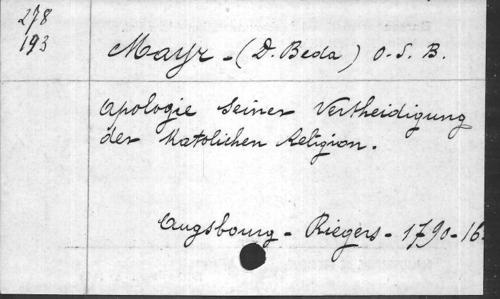 278
193
Mayr - (D. Beda) O. S. B.
Apologie seiner Vertheidigung
der Katolichen Religion.
Augsbourg - Riegers - 1790 - 16.